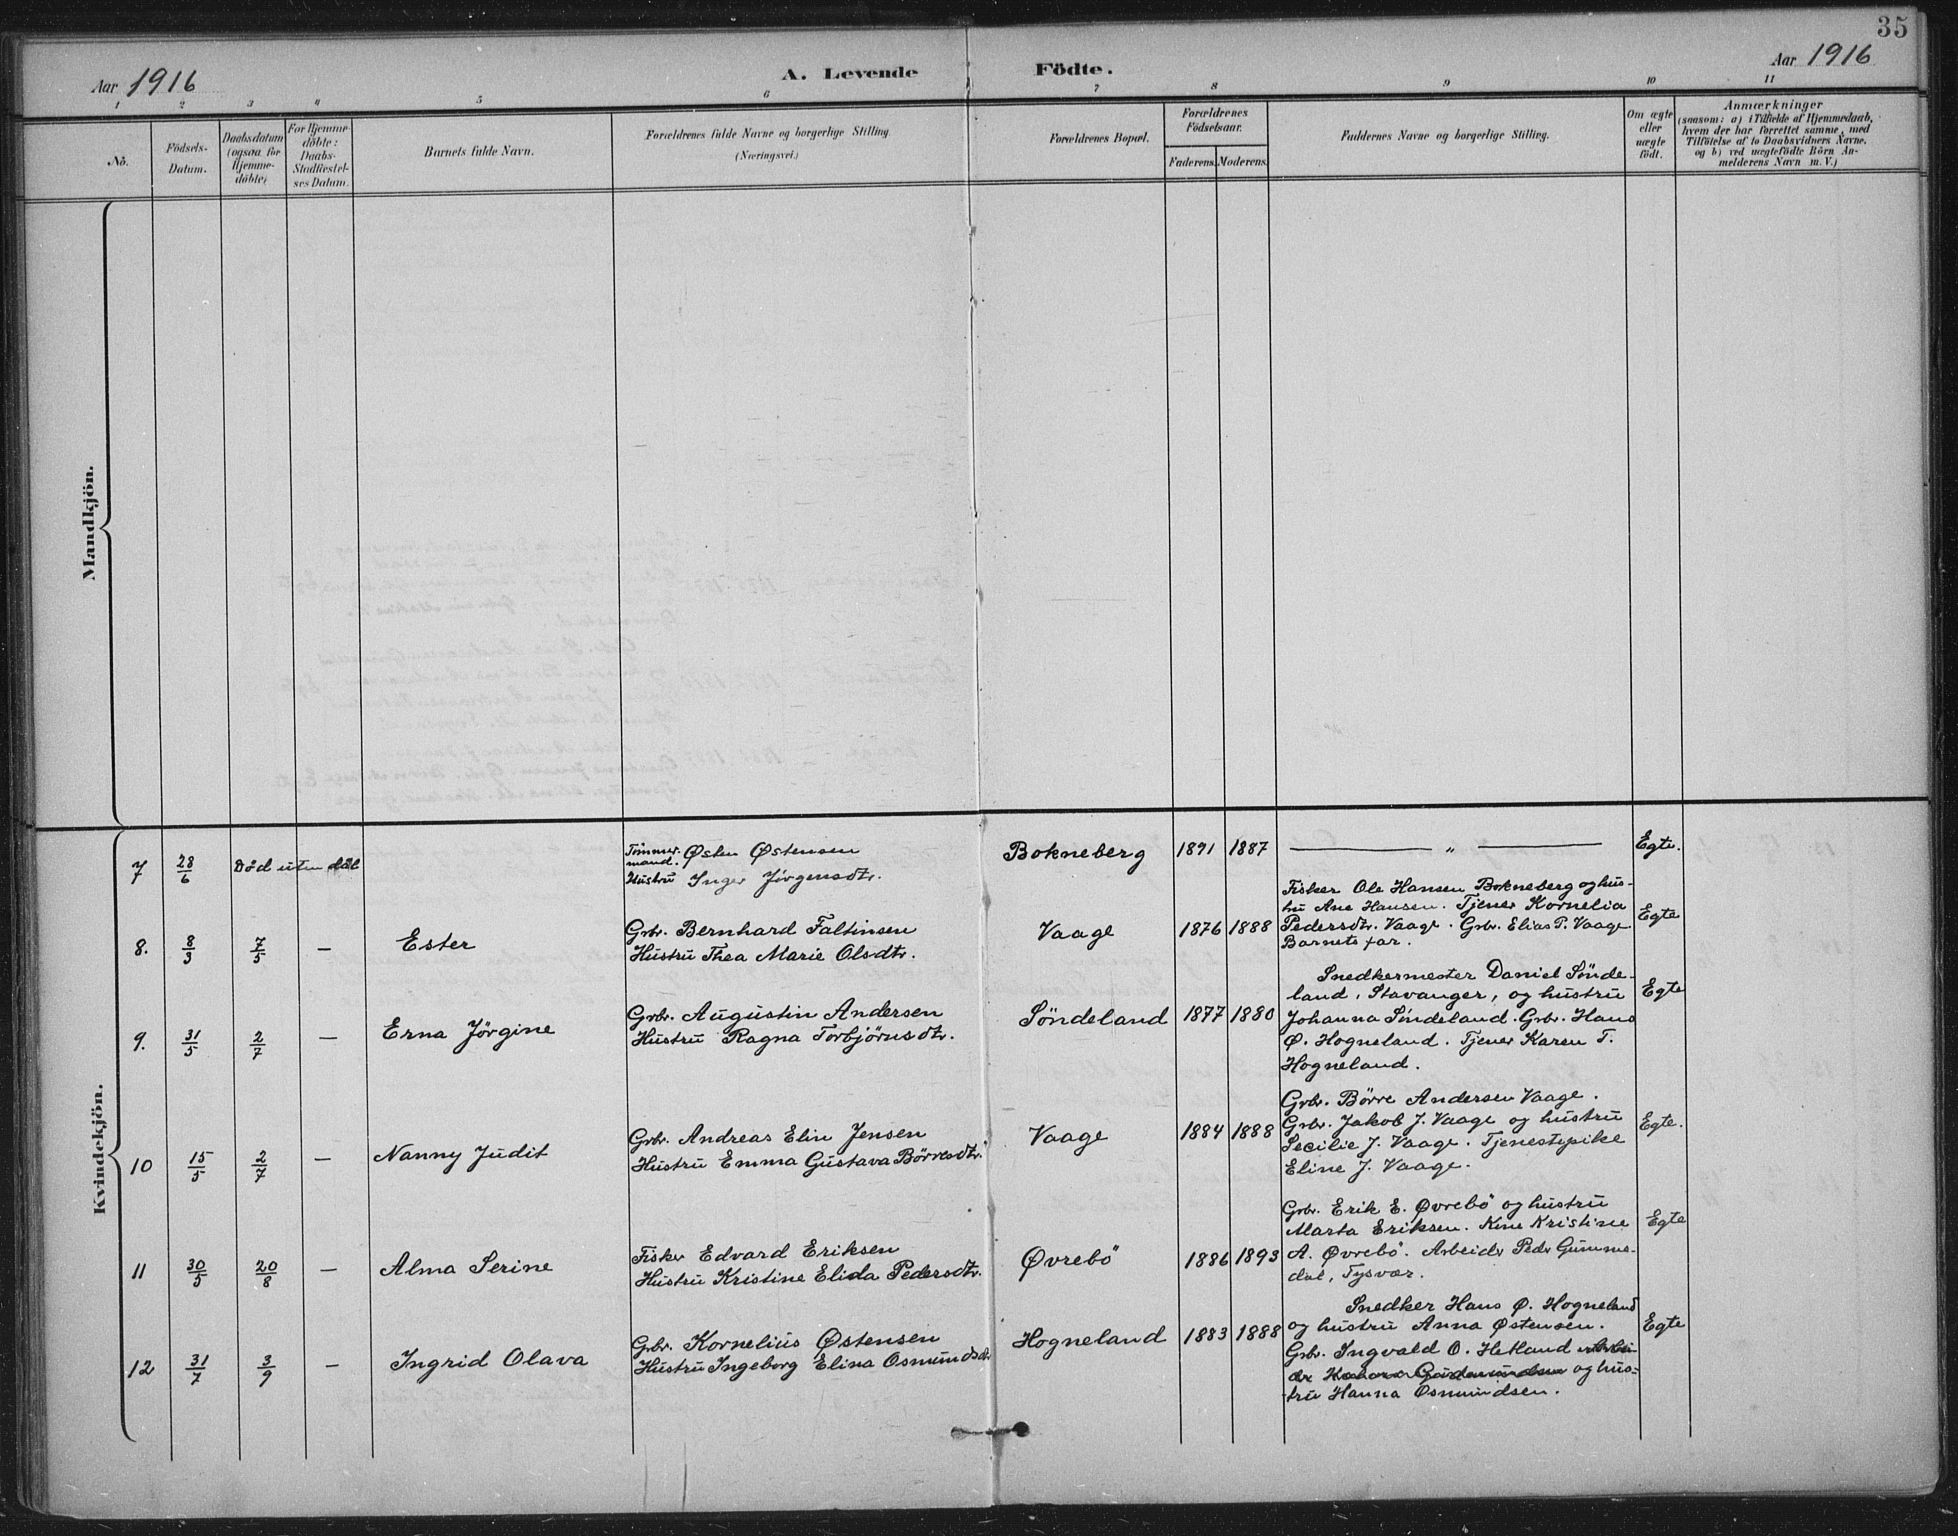 35
Aar 1916
A. Levende Födte.
Aar 1916
1 2 3 4 5 6 7 8 9 10 11
No.
Födsels-
Datum.
Daabsdatum
(ogsaa for
Hjemme-
döbte)
For Hjemme-
döbte:
Daabs-
Stadfæstel-
ses Datum.
Barnets fulde Navn.
Forældrenes fulde Navne og borgerlige Stilling.
(Næringsvei.)
Forældrenes Bopæl.
Forældrenes
Födselsaar.
Faderens. Moderens.
Faddernes Navne og borgerlige Stilling.
Om ægte
eller
uægte
födt.
Anmærkninger
(saasom: a) i Tilfælde af Hjemmedaab,
hvem der har forrettet samme, med
Tilföielse af to Daabsvidners Navne,
og b) ved uægtefödte Börn An-
melderens Navn m. V.)
Mandkjön.
Kvindekjön.
7 28/6 Död uten dåb
Tömmer-
mand. Østen Østensen
Hustru Inger Jörgensdtr.
Bokneberg 1891 1887 — „ — Egte.
8. 8/3 7/5 — Ester
Grbr. Bernhard Faltinsen
Hustru Thea Marie Olsdtr.
Vaage 1876 1888
Fisker Ole Hansen Bokneberg og hus-
tru Ane Hansen. Tjener Kornelia
Pedersdtr. Vaage. Grbr. Elias P. Vaage
Barnets far.
Egte
9. 31/5 2/7 — Erna Jörgine
Grbr. Augustin Andersen
Hustru Ragna Torbjörnsdtr.
Söndeland 1877 1880
Snedkermester Daniel Sönde-
land, Stavanger, og hustru
Johanna Söndeland. Grbr. Hans
Ø. Hogneland. Tjener Karen T.
Hogneland.
Egte
10 15/5 2/7 — Nanny Judit
Grbr. Andreas Elin Jensen
Hustru Emma Gustava Börresdtr.
Vaage 1884 1888
Grbr. Börre Andersen Vaage.
Grbr. Jakob J. Vaage og hustru
Secilie J. Vaage. Tjenestepike
Eline J. Vaage.
Egte.
11 30/5 20/8 — Alma Serine
Fisker Edvard Eriksen
Hustru Kristine Elida Pedersdtr.
Øvrebö 1886 1893
Grbr. Erik E. Øvrebö og hustru
Marta Eriksen. Kine Kristine
A. Øvrebö. Arbeidr Pedr Gumme-
dal, Tysvær.
Egte
12 31/7 3/9 — Ingrid Olava
Grbr. Kornelius Østensen
Hustru Ingeborg Elina Osmundsdr
Hogneland 1883 1888
Snedker Hans Ø. Hogneland
og hustru Anna Østensen.
Grbr. Ingvald O. Hetland
og hus-
tru Hanna Osmundsen.
Egte